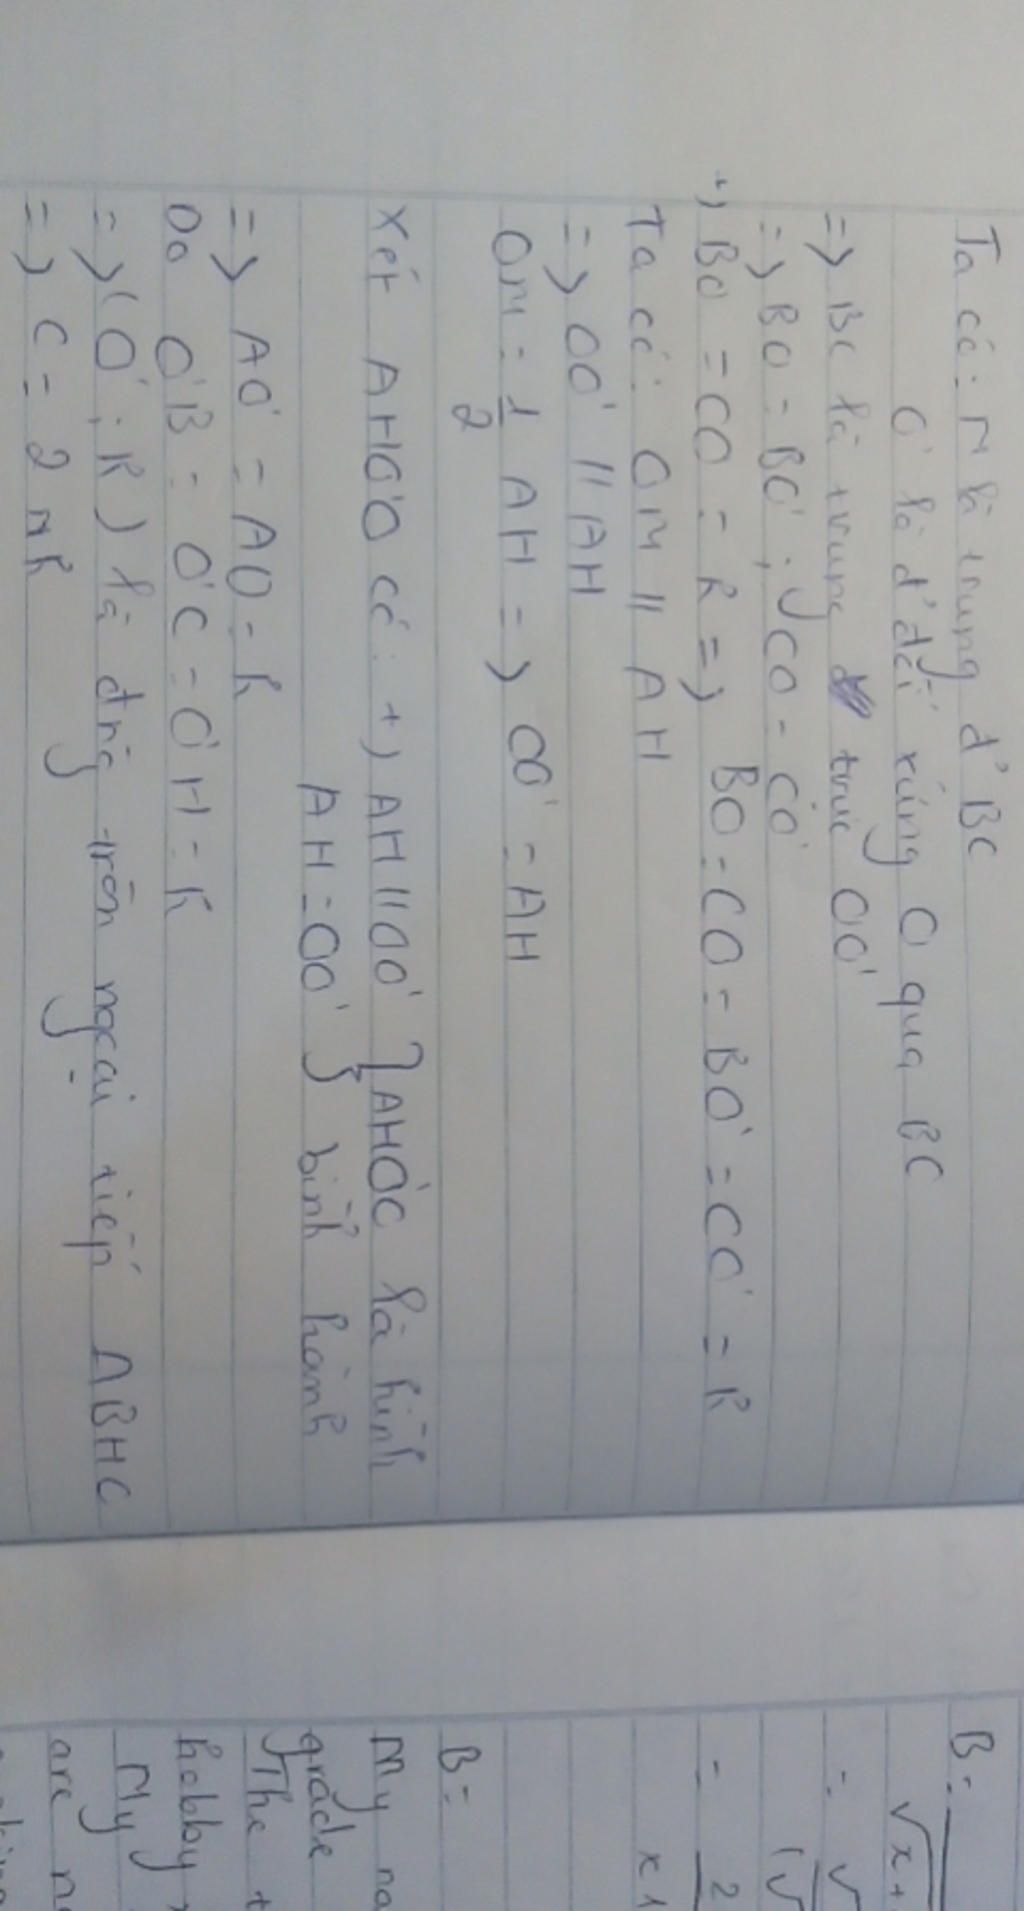 Ta có: M là trung đ' BC
O' là đ' đối xứng O qua BC
=> BC là trung trực OO'
=> BO = BO'; CO = CO'
+) BO = CO = R => BO = CO = BO' = CO' = R
Ta có: OM // AH
=> OO' // AH
OM = 1/2 AH => OO' = AH
Xét AHO'O có: +) AH // OO' } AHO'O là hình
AH = OO' } bình hành
=> AO' = AO = R
Do O'B = O'C = O'H = R
=> (O'; R) là đng tròn ngoại tiếp ΔBHC
=> C = 2πR
B =
√x+
= √
(√
= 2
x1
B =
My na
grade
The t
hobby
My
are n